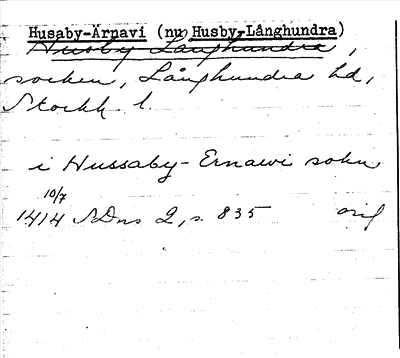 Husaby-Ärnavi (nu Husby-Långhundra)
Husby Långhundra,
socken, Långhundra hd,
Stockh. l.
i Hussaby-Ernawi sokn
10/7
1414 SDns 2, s. 835 orig